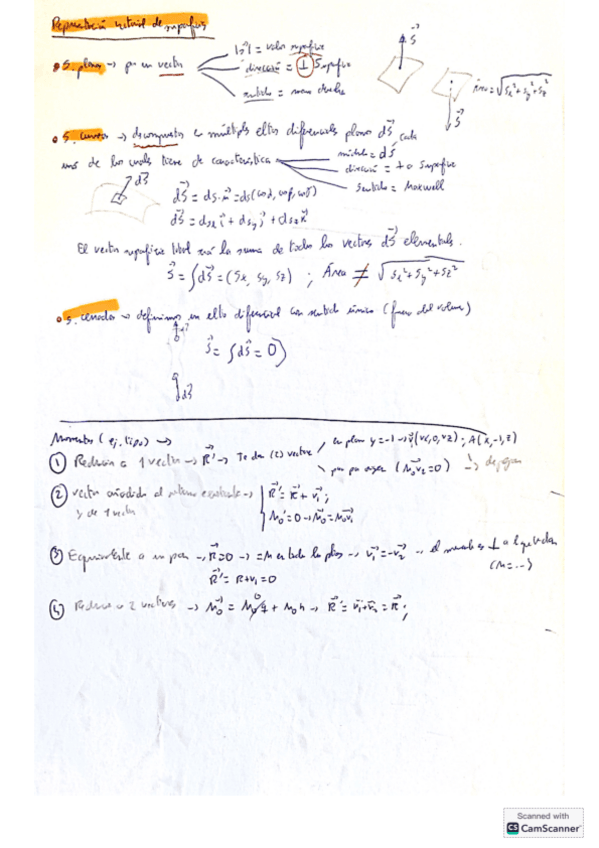 Representación vectorial de superficies
|S⃗| = valor superficie
• S. planas → por un vector
dirección = ⊥ Superficie
sentido = mano derecha
S⃗
Área = √(Sx² + Sy² + Sz²)
S⃗
• S. curvas → descompuestas en múltiples eltos diferenciales planos dS⃗ cada
uno de los cuales tiene de característica
módulo = dS
dirección = to Superficie
Sentido = Maxwell
dS⃗
dS⃗ = dS·n⃗ = dS(cosα, cosβ, cosγ)
dS⃗ = dSx i⃗ + dSy j⃗ + dSz k⃗
El vector superficie total será la suma de todos los vectores dS⃗ elementales.
S⃗ = ∫dS⃗ = (Sx, Sy, Sz) ; Área ≠ √(Sx² + Sy² + Sz²)
• S. cerradas → definimos un elto diferencial con sentido único (fuera del volumen)
S⃗ = ∫dS⃗ = 0⃗
dS⃗
Momentos (ej. tipo) →
en plano y=-1 → v⃗₁(vx,0,vz) ; A(x,-1,z)
① Reducir a 1 vector → R⃗' → Te dan (2) vectores
pasa por origen (M⃗₀v₂=0) → despejar
② vector añadido al sistema
y da 1 vector
R⃗' = R⃗ + v⃗₁ ;
M₀' = 0 → M⃗₀ = M⃗₀v₁
③ Equivalente a un par → R⃗=0 → =M en todos los ptos → v⃗₁ = -v⃗₂ → el momento es ⊥ a
R⃗' = R + v₁ = 0
(M = ...)
④ Reduce a 2 vectores → M⃗₀' = → R⃗' = v⃗₁ + v⃗₂ = R⃗ ;
Scanned with
CS CamScanner